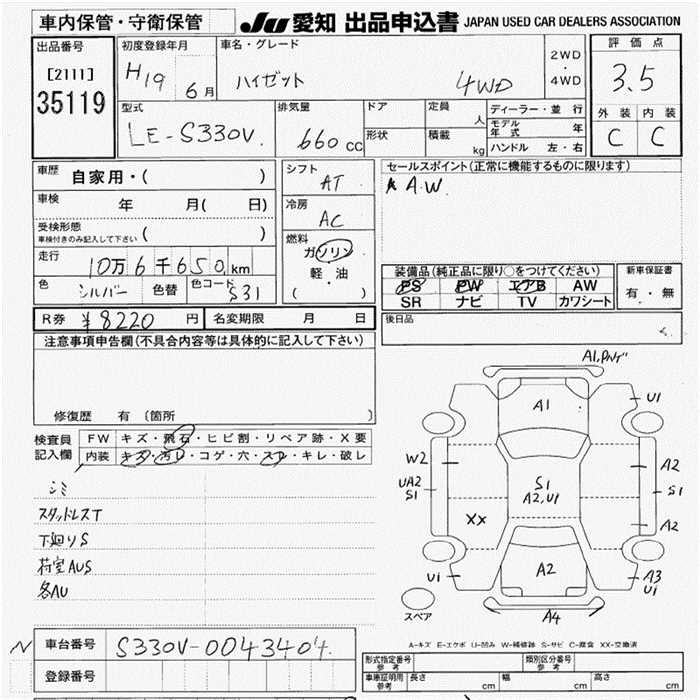 車内保管・守衛保管
JU 愛知 出品申込書 JAPAN USED CAR DEALERS ASSOCIATION
出品番号
[2111]
35119
初度登録年月
H19 6月
車名・グレード
ハイゼット 4WD
2WD
・
4WD
評価点
3.5
外装 内装
C C
型式
LE-S330V.
排気量
660 CC
ドア
形状
定員
人
積載
kg
ディーラー・並行
モデル年式 年
ハンドル 左・右
車歴 自家用・( )
車検 年 月( 日)
受検形態
車検付きのみ記入して下さい ( )
走行
10万6千650km
色 シルバー 色替 色コード S31
シフト
AT
冷房
AC
燃料
ガソリン
軽・油
( )
セールスポイント(正常に機能するものに限ります)
A.W.
装備品(純正品に限り○をつけてください)
PS PW エアB AW
SR ナビ TV カワシート
新車保証書
有・無
後日品
R券 ¥8220 円 名変期限 月 日
注意事項申告欄(不具合内容等は具体的に記入して下さい)
修復歴 有 〔箇所 〕
検査員
記入欄
FW キズ・飛石・ヒビ割・リペア跡・X要
内装 キズ・汚レ・コゲ・穴・スレ・キレ・破レ
シミ
スタッドレスT
下廻りS
荷室AUS
各AU
A1,PNゲ
A1
U1
W2
UA2
S1
S1
A2,U1
A2
S1
XX
A2
U1
A2
A3
U1
スペア
A4
A-キズ E-エクボ U-凹み W-補修跡 S-サビ C-腐食 XX-交換済
N 車台番号 S330V-0043404.
登録番号
形式指定番号
参考
類別区分番号
参考
車庫証明用
参考
長さ cm 幅 cm 高さ cm